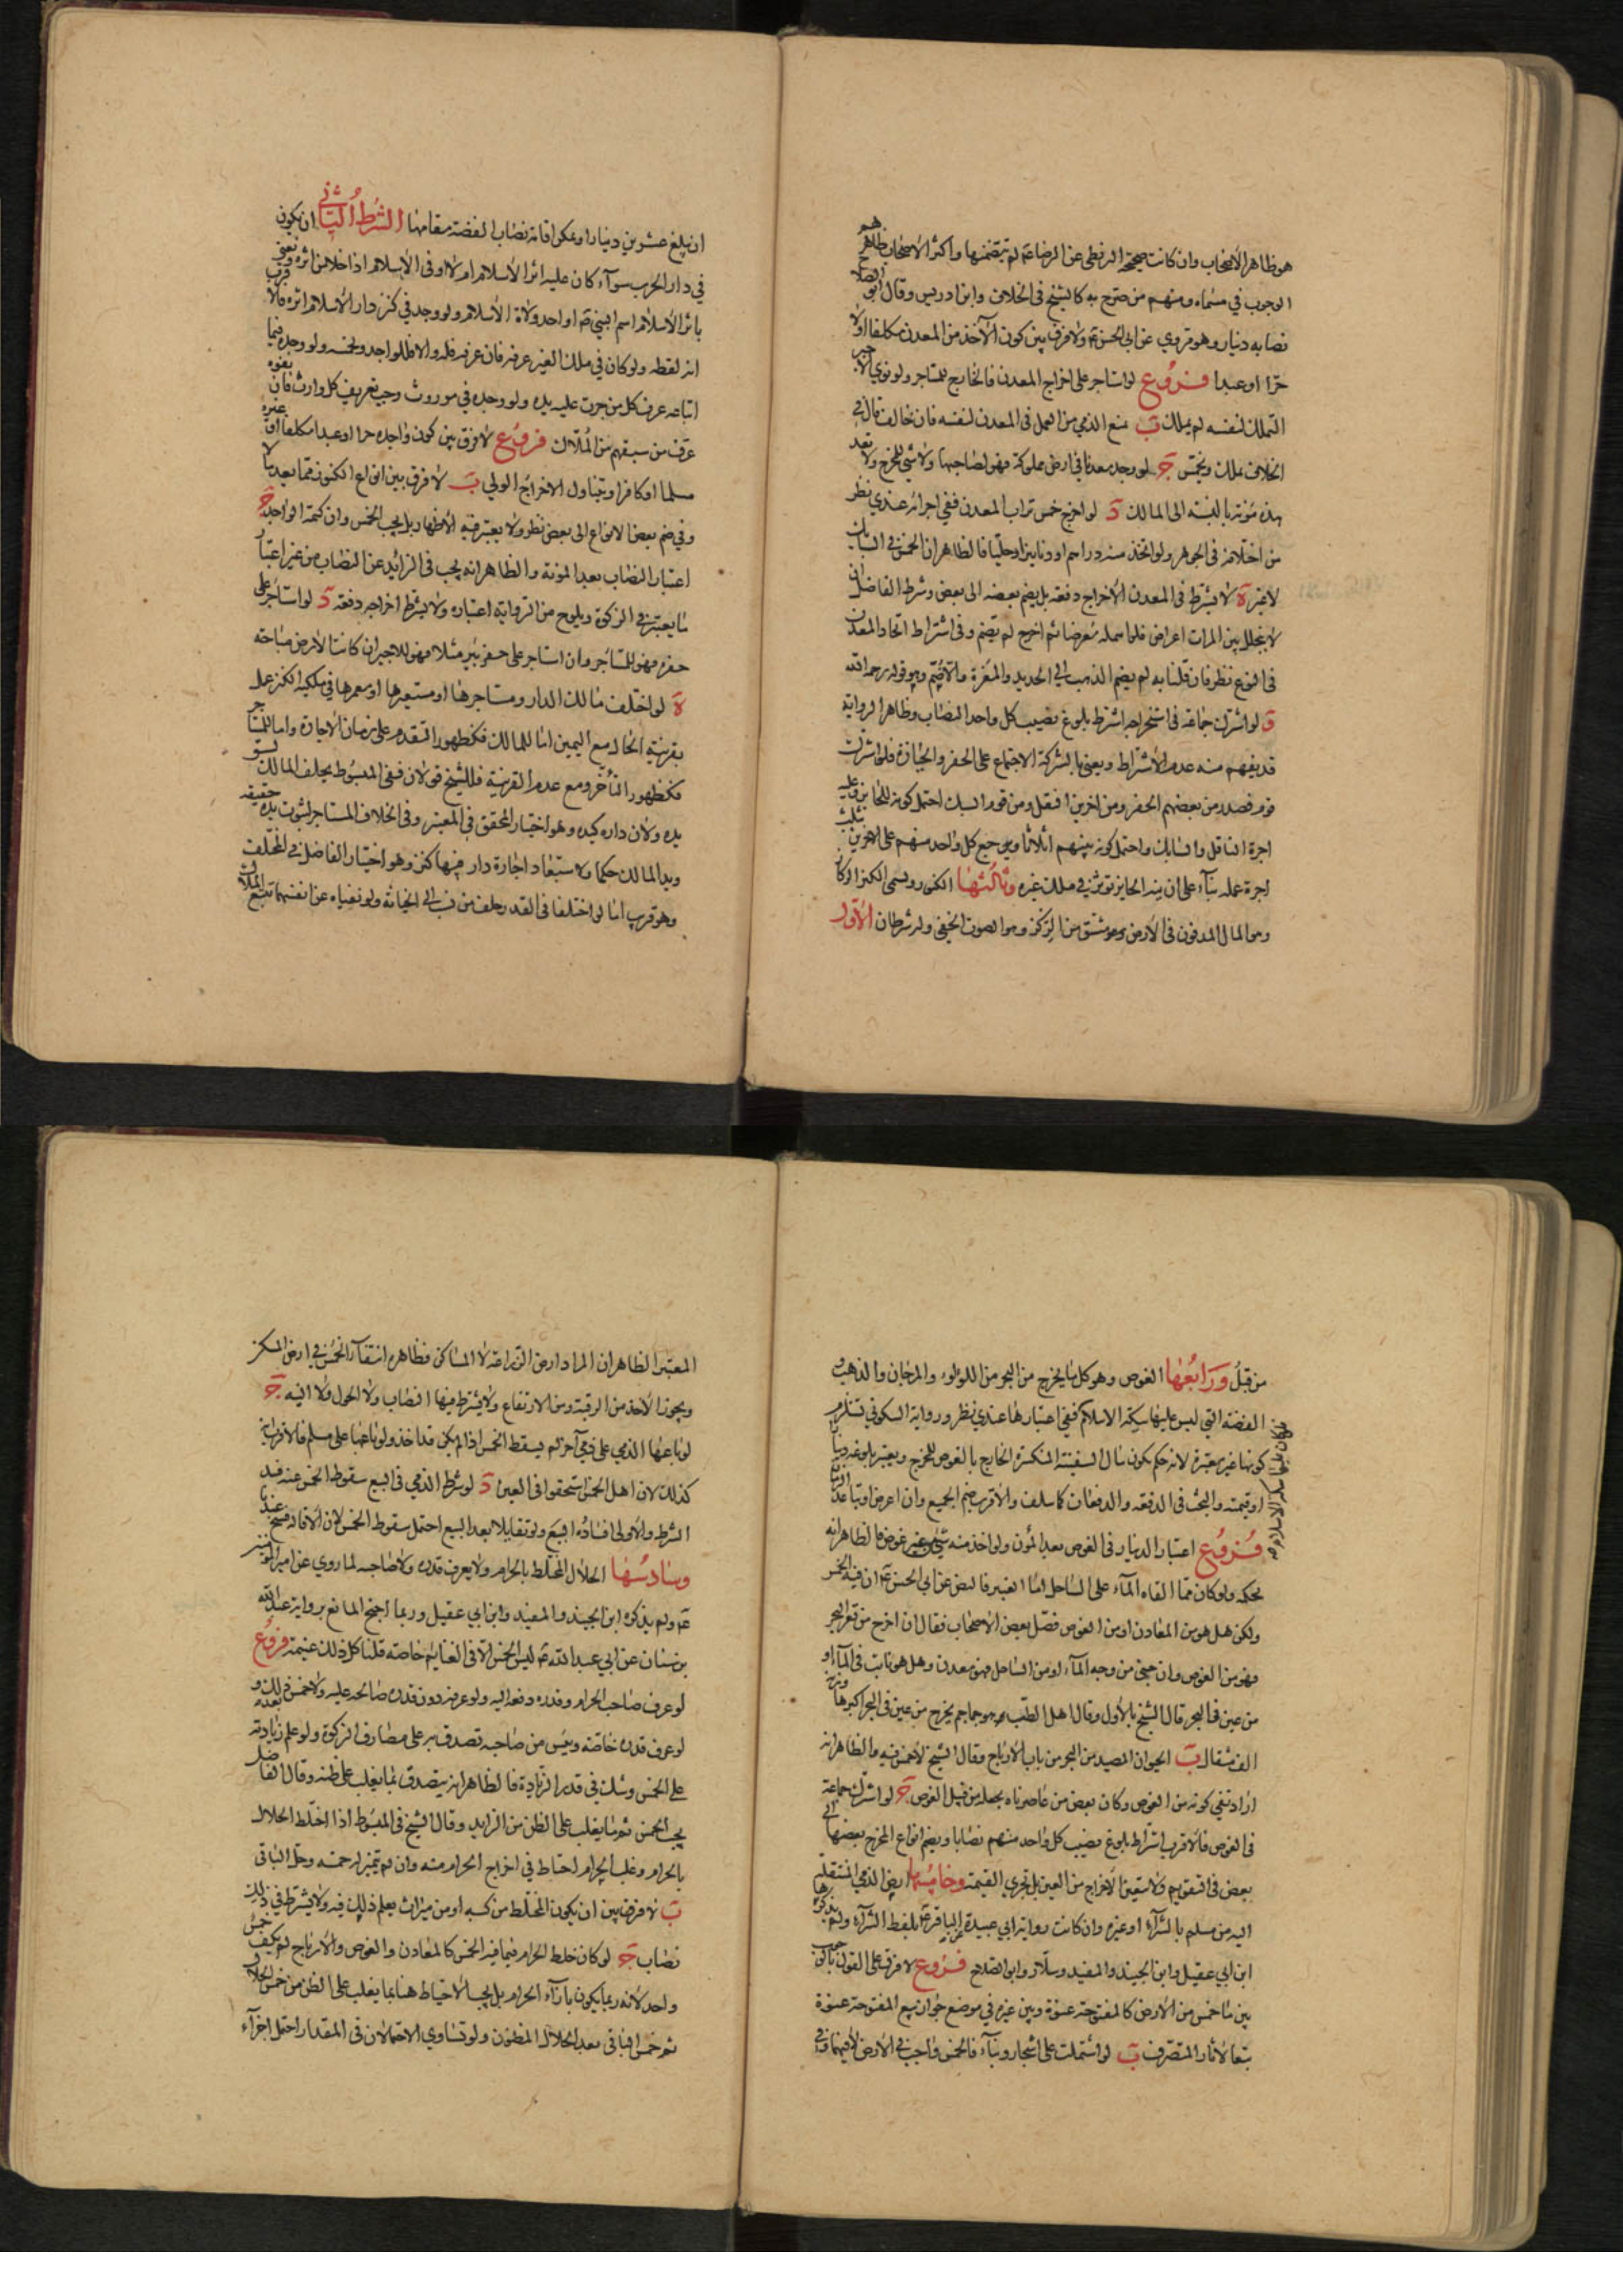 هو ظاهر الأصحاب وان كانت صحيحة البزنطي عن الرضا عم لم تتضمنها واكثر الأصحاب ظاهرهم
الوجوب في مسماه ومنهم من صرح به كالشيخ في الخلاف وابن ادريس وقال ابو الصلاح
نصابه دينار وهو مروي عن ابي الحسن عم ولا فرق بين كون الآخذ من المعدن مكلفا اولا
حرا او عبدا فروع لو استاجر على اخراج المعدن فالخارج للمستاجر ولو نوى الاجير
التملك لنفسه لم يملك ب يمنع الذمي من العمل في المعدن لنفسه فان خالف قال في
الخلاف يملك ويخمس ج لو وجد معدنا في ارض مملوكة فهو لصاحبها ولا شي للمخرج ولا تعد
هذه مؤنة بالنسبة الى المالك د لو اخرج خمس تراب المعدن ففي اجزائه عندي نظر
من اختلافه في الجوهر ولو اتخذ منه دراهم او دنانير او حليا فالظاهر ان الخمس في السبائك
لا غير ه لا يشترط في المعدن الاخراج دفعة بل يضم بعضه الى بعض وشرط الفاضل ان
لا يتخلل بين المرات اعراض فلو اهمله معرضا ثم اخرج لم يضم وفي اشتراط اتحاد المعدن
في النوع نظر فان قلنا به لم يضم الذهب الى الحديد والمغرة والا ضم وهو قوله رحمه الله
و لو اشترك جماعة في استخراجه اشترط بلوغ نصيب كل واحد النصاب وظاهر الرواية
قد يفهم منه عدم الاشتراط ويعني بالشركة الاجتماع على الحفر والحيازة فلو اشترك
قوم فصدر من بعضهم الحفر ومن اخرين النقل ومن قوم السبك احتمل كونه للحايز وعليه
اجرة الناقل والسابك واحتمل كونه بينهم اثلاثا ويرجع كل واحد منهم على الاخرين بثلث
اجرة عمله بناء على ان نية الحايز تؤثر في ملك غيره وثالثها الكنز ويسمى الكنز الركاز
وهو المال المدفون في الارض وهو مشتق من الركز وهو الصوت الخفي وله شرطان الأول
ان يبلغ عشرين دينارا ويمكن اقامة نصاب الفضة مقامها الشرط الثاني ان يكون
في دار الحرب سواء كان عليه اثر الاسلام اولا او في الاسلام اذا خلا من اثره ونعني
باثر الاسلام اسم النبي ص او احد ولاة الاسلام ولو وجد في كنز دار الاسلام اثره فالاقرب
انه لقطه ولو كان في ملك الغير عرفه فان عرفه فله والا فللواجد ويخمسه ولو وجده فيما
ابتاعه عرف كل من جرت عليه يده ولو وجده في موروث وجب تعريف كل وارث فان نفوه
عرف من سبقهم من الملاك فروع لا فرق بين كون واجده حرا او عبدا مكلفا او غيره
مسلما او كافرا ويتناول الاخراج الولي ب لا فرق بين انواع الكنوز مما يعد مالا
وفي ضم بعض الانواع الى بعض نظر ولا يعتبر فيه الاظهار بل يجب الخمس وان كتمه الواجد ج
اعتبار النصاب بعد المؤنة والظاهر انه يجب في الزائد عن النصاب من غير اعتبار
ما يعتبر في الزكوة ويلوح من الرواية اعتباره ولا يشترط اخراجه دفعة د لو استاجر على
حفره فهو للمستاجر وان استاجر على حفر بئر مثلا فهو للاجير ان كانت الارض مباحة
ه لو اختلف مالك الدار ومستاجرها او مستعيرها او معمرها في ملكية الكنز عمل
بقرينة الحال مع اليمين اما للمالك فكظهور التقدم على زمان الاجارة واما للمستاجر
فكظهور التأخر ومع عدم القرينة فللشيخ قولان ففي المبسوط يحلف المالك لسبق
يده ولان داره كيده وهو اختيار المحقق في المعتبر وفي الخلاف المستاجر لثبوت يده حقيقة
ويد المالك حكما ولاستبعاد اجارة دار فيها كنز وهو اختيار الفاضل في المختلف
وهو قريب اما لو اختلفا في القدر حلف من نسب الى الخيانة ولو نفياه عن انفسهما تتبع الملاك
من قبل ورابعها الغوص وهو كل ما يخرج من البحر من اللؤلؤ والمرجان والذهب و
الفضة التي ليس عليها سكة الاسلام ففي اعتبارها عندي نظر ورواية السكوني تستلزم
كونها غير معتبرة لانه حكم بكون مال السفينة المنكسرة الخارج بالغوص للمخرج ويعتبر بلوغه دينارا
او قيمته والبحث في الدفعة والدفعات كما سلف والاقرب ضم الجميع وان اعرض او تباعد الزمان
فروع اعتبار الدينار في الغوص بعد المؤن ولو اخذ منه شي من غير غوص فالظاهر انه
بحكمه ولو كان مما القاه الماء على الساحل اما العنبر فالنص عن ابي الحسن عم ان فيه الخمس
ولكن هل هو من المعادن او من الغوص فصل بعض الاصحاب فقال ان اخرج من قعر البحر
فهو من الغوص وان جني من وجه الماء او من الساحل فهو معدن وهل هو نابت في الماء او
من عين في البحر قال الشيخ بالاول وقال اهل الطب هو جماجم يخرج من عين في البحر اكبرها وزنه
الف مثقال ب الحيوان المصيد من البحر من باب الارباح وقال الشيخ لا خمس فيه والظاهر انه
اراد نفي كونه من الغوص وكان بعض من عاصرناه يجعله من قبيل الغوص ج لو اشترك جماعة
في الغوص فالاقرب اشتراط بلوغ نصيب كل واحد منهم نصابا ويضم انواع المخرج بعضها الى
بعض في التقويم ولا يتعين الاخراج من العين بل تجزي القيمة وخامسها ارض الذمي المنتقلة
اليه من مسلم بالشراء او غيره وان كانت رواية ابي عبيدة عن الباقر عم بلفظ الشراء ولم يذكرها
ابن ابي عقيل وابن الجنيد والمفيد وسلار وابو الصلاح فروع لا فرق على القول بالوجوب
بين ما خمس من الارض كالمفتوحة عنوة وبين غيره في موضع جواز بيع المفتوحة عنوة
تبعا لاثار المتصرف ب لو اشتملت على اشجار وبناء فالخمس واجب في الارض لا فيهما وفي
المعتبر الظاهر ان المراد ارض الزراعة لا المساكن فظاهره انتفاء الخمس في ارض المسكن
ويجوز الاخذ من الرقبة ومن الارتفاع ولا يشترط فيها النصاب ولا الحول ولا النية ج
لو باعها الذمي على ذمي آخر لم يسقط الخمس اذا لم يكن قد اخذ ولو باعها على مسلم فالاقرب انه
كذلك لان اهل الخمس استحقوا في العين د لو شرط الذمي في البيع سقوط الخمس عنه فسد
الشرط والاولى افساده البيع ولو تقايلا بعد البيع احتمل سقوط الخمس لان الاقالة فسخ عندنا
وسادسها الحلال المختلط بالحرام ولا يعرف قدره ولا صاحبه لما روي عن امير المؤمنين
عم ولم يذكره ابن الجنيد والمفيد وابن ابي عقيل وربما احتج المانع برواية عبد الله
بن سنان عن ابي عبد الله عم ليس الخمس الا في الغنايم خاصة قلنا كل ذلك غنيمة فروع
لو عرف صاحب الحرام وقدره دفعه اليه ولو عرفه دون قدره صالحه عليه ولا خمس في ذلك و
لو عرف قدره خاصة ويئس من صاحبه تصدق به على مصارف الزكوة ولو علم زيادته
على الخمس وشك في قدر الزيادة فالظاهر انه يتصدق بما يغلب على ظنه وقال الفاضل
يجب الخمس ثم ما يغلب على الظن من الزايد وقال الشيخ في المبسوط اذا اختلط الحلال
بالحرام وغلب الحرام احتاط في اخراج الحرام منه وان لم يتميز له خمسه وحل الباقي
ب لا فرق بين ان يكون المختلط من كسبه او من ميراث يعلم ذلك فيه ولا يشترط في ذلك
نصاب ج لو كان خلط الحرام فيما فيه الخمس كالمعادن والغوص والارباح لم يكف خمس
واحد لانه ربما يكون بازاء الحرام بل يجب الاحتياط هنا بما يغلب على الظن من خمس الحلال
ثم خمس الباقي بعد الحلال المظنون ولو تساوى الاحتمالان في المقدار احتمل اجزاء